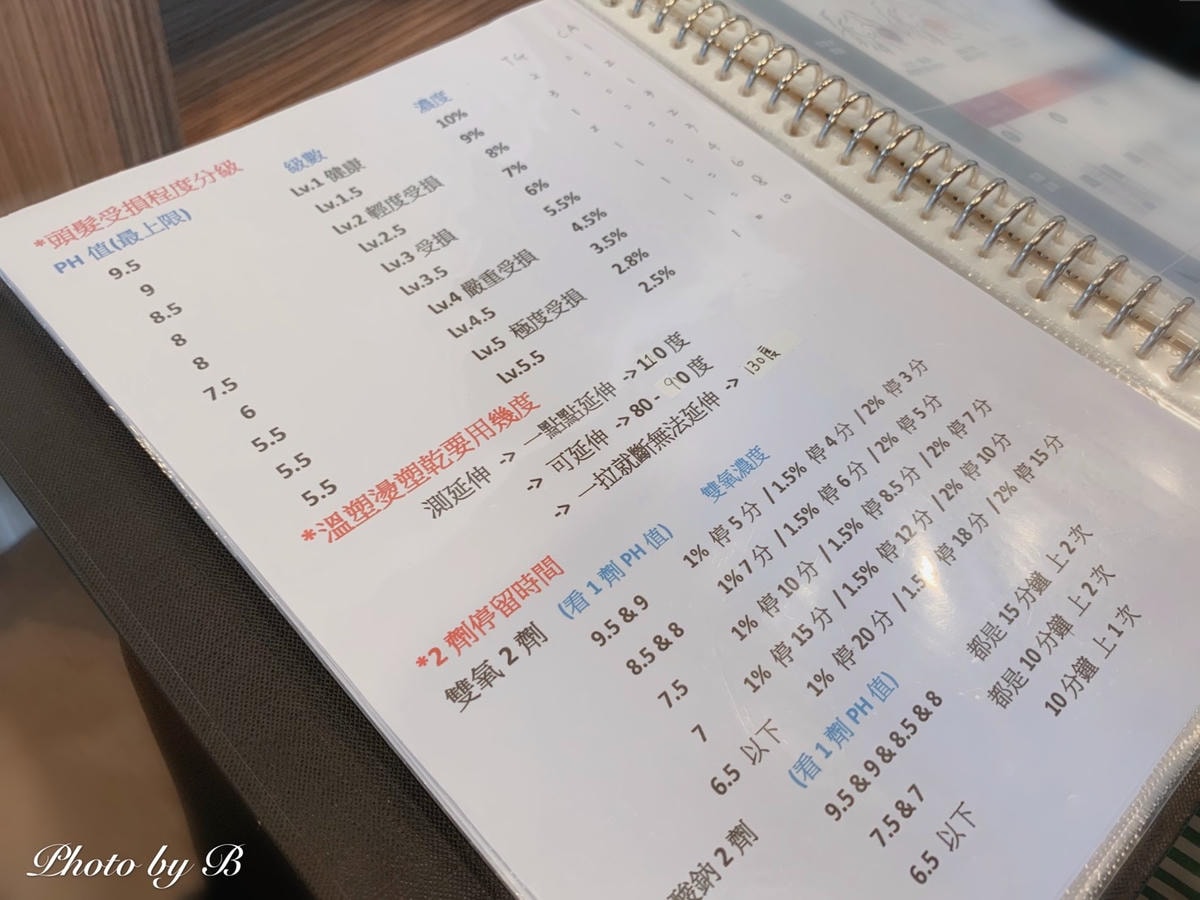 *頭髮受損程度分級
PH 值(最上限) 級數 濃度 TG CA
9.5 Lv.1 健康 10%
9 Lv.1.5 9%
8.5 Lv.2 輕度受損 8%
8 Lv.2.5 7%
8 Lv.3 受損 6%
7.5 Lv.3.5 5.5%
6 Lv.4 嚴重受損 4.5%
5.5 Lv.4.5 3.5%
5.5 Lv.5 極度受損 2.8%
5.5 Lv.5.5 2.5%
*溫塑燙塑乾要用幾度
測延伸 -> 一點點延伸 -> 110 度
-> 可延伸 -> 80 - 90 度
-> 一拉就斷無法延伸 -> 130度
*2 劑停留時間
雙氧 2 劑 (看 1 劑 PH 值) 雙氧濃度
9.5 & 9 1% 停 5 分 / 1.5% 停 4 分 / 2% 停 3 分
8.5 & 8 1% 7 分 / 1.5% 停 6 分 / 2% 停 5 分
7.5 1% 停 10 分 / 1.5% 停 8.5 分 / 2% 停 7 分
7 1% 停 15 分 / 1.5% 停 12 分 / 2% 停 10 分
6.5 以下 1% 停 20 分 / 1.5 停 18 分 / 2% 停 15 分
酸鈉 2 劑 (看 1 劑 PH 值)
9.5 & 9 & 8.5 & 8 都是 15 分鐘 上 2 次
7.5 & 7 都是 10 分鐘 上 2 次
6.5 以下 10 分鐘 上 1 次
Photo by B